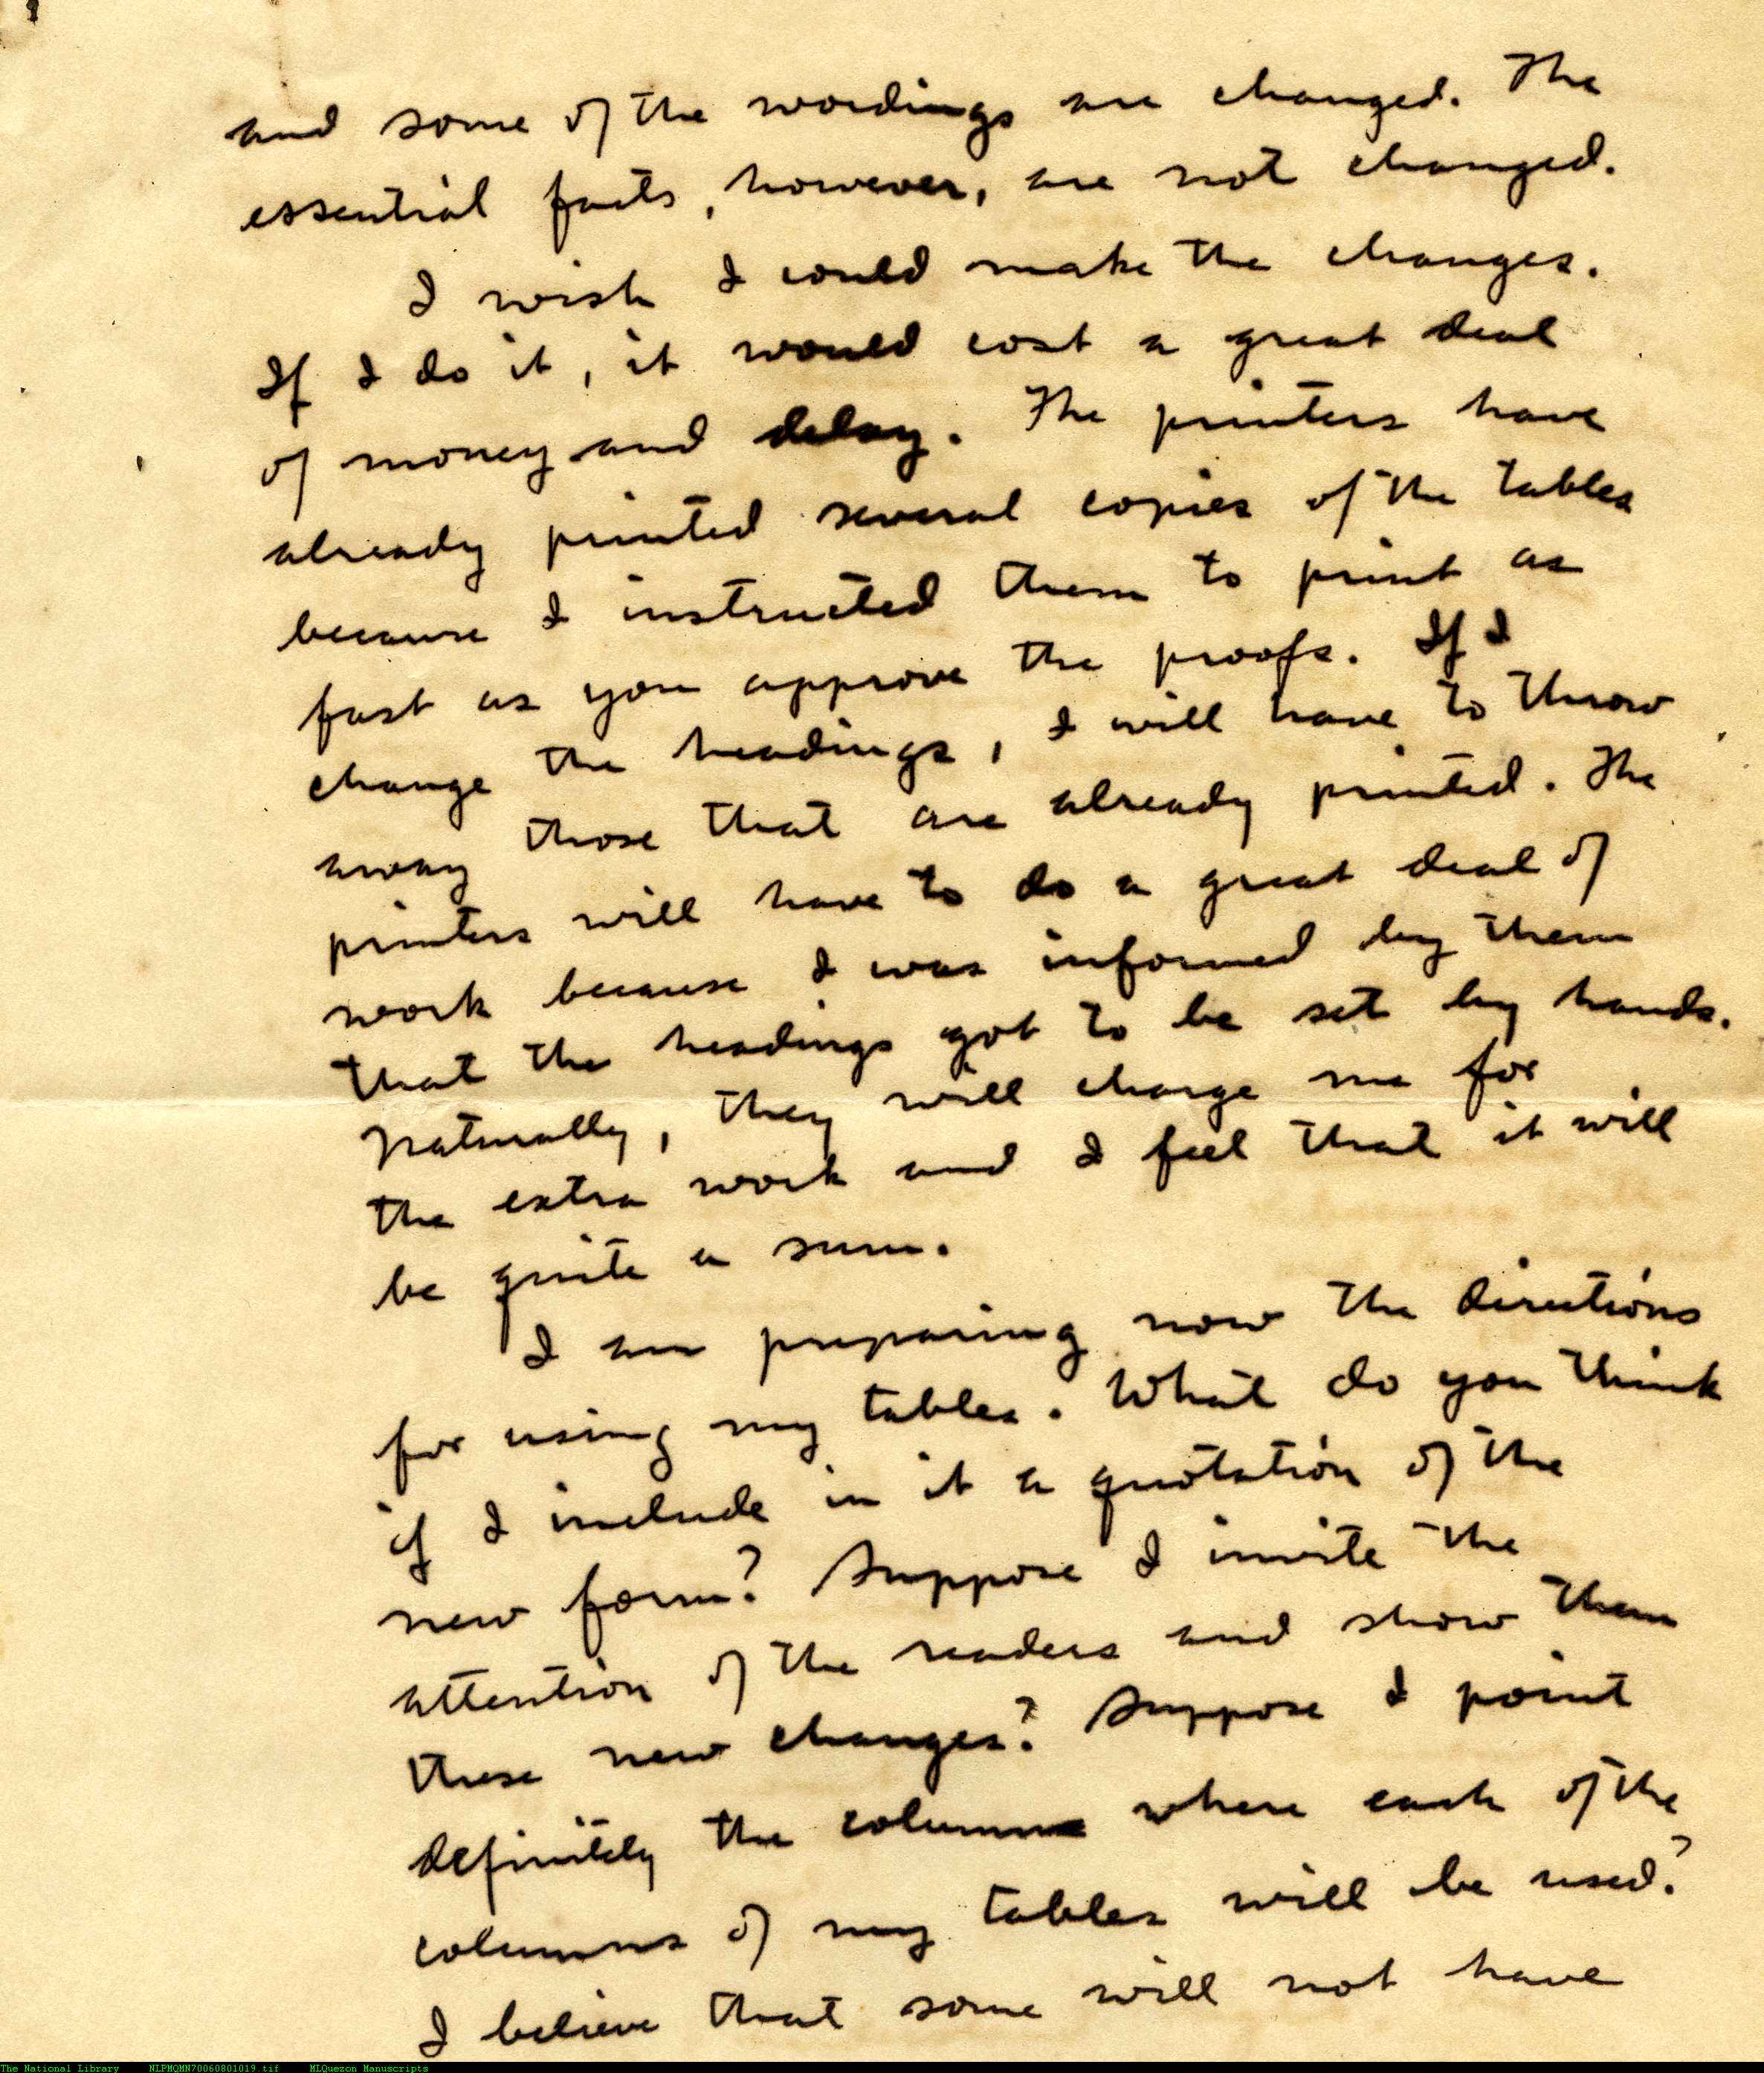 and some of the wordings are changed. The
essential facts, however, are not changed.
I wish I could make the changes.
If I do it, it would cost a great deal
of money and delay. The printers have
already printed several copies of the tables
because I instructed them to print as
fast as you approve the proofs. If I
change the headings, I will have to throw
away those that are already printed. The
printers will have to do a great deal of
work because I was informed by them
that the headings got to be set by hands.
Naturally, they will charge me for
the extra work and I feel that it will
be quite a sum.
I am preparing now the directions
for using my tables. What do you think
if I include in it a quotation of the
new form? Suppose I invite the
attention of the readers and show them
these new changes? Suppose I point
definitely the columns where each of the
columns of my tables will be used?
I believe that some will not have
The National Library NLPMQMN70060801019.tif MLQuezon Manuscripts